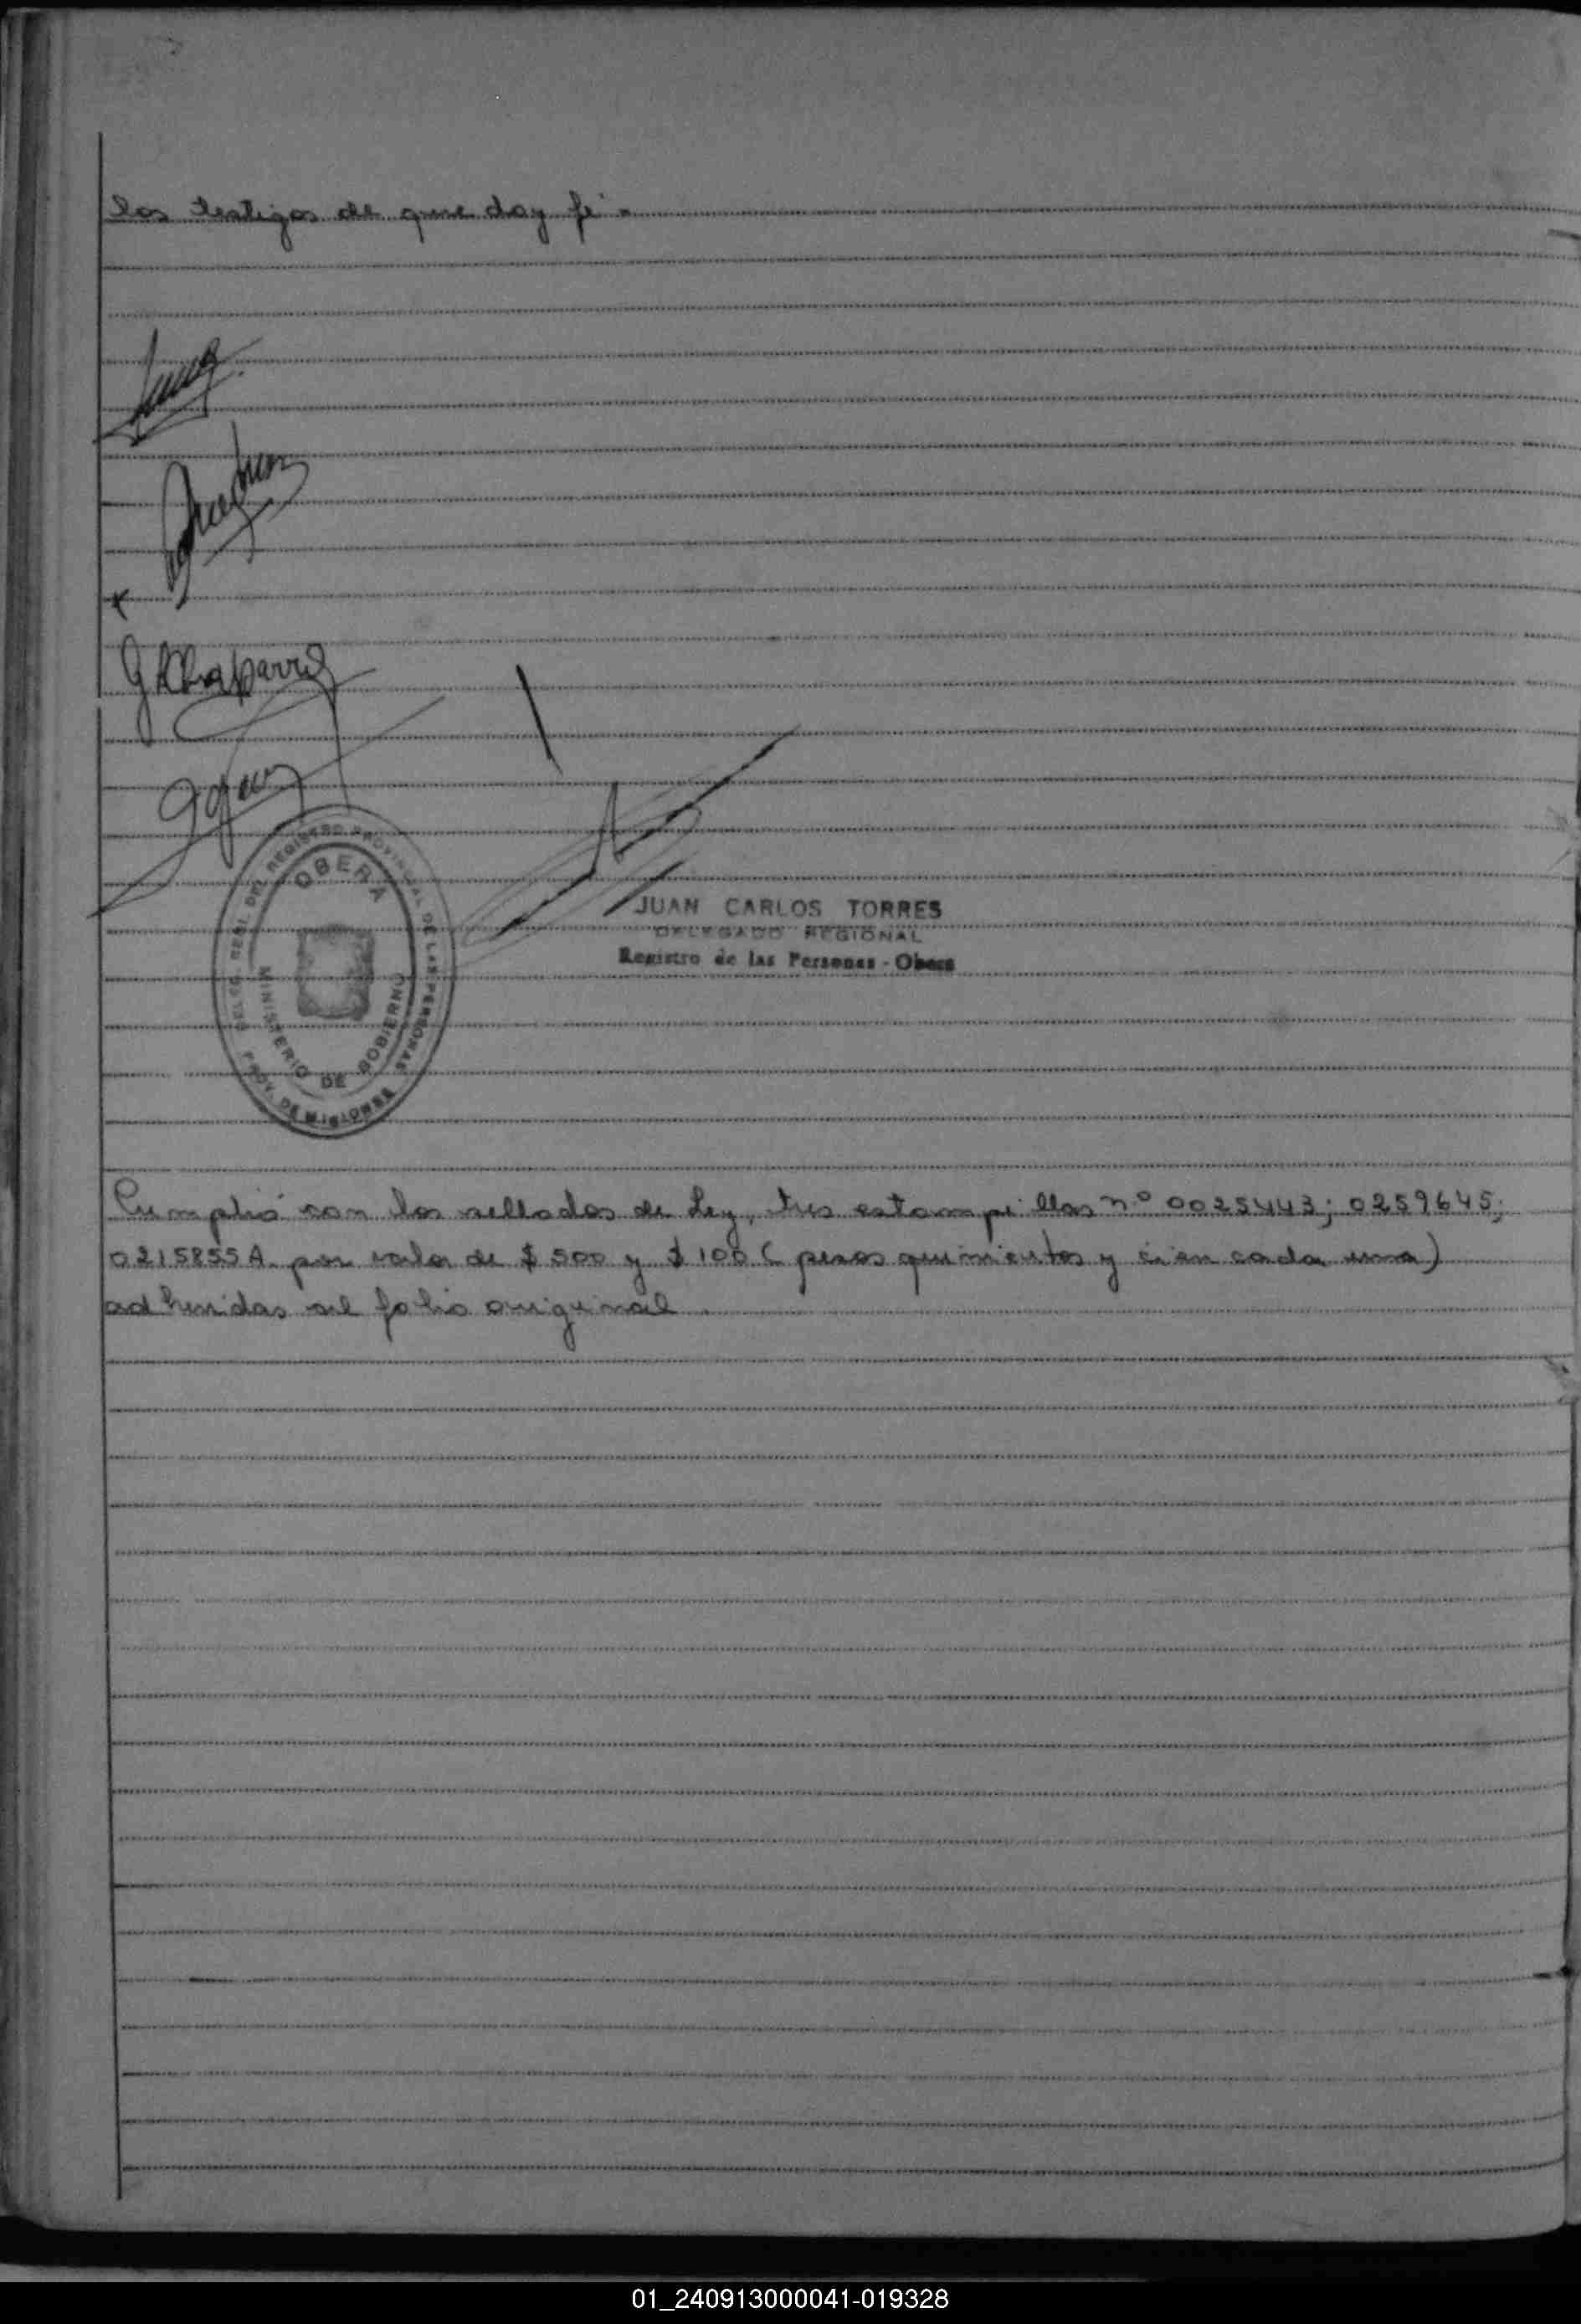 los testigos de que doy fe.
G A Chaparro
OBERA
DELEG. GENL. DEL REGISTRO PROVINCIAL DE LAS PERSONAS
MINISTERIO DE GOBIERNO
PROV. DE MISIONES
JUAN CARLOS TORRES
DELEGADO REGIONAL
Registro de las Personas - Obera
Cumplió con los sellados de Ley, tres estampillas nº 0025443; 0259645;
0215855A por valor de $ 500 y $ 100 ( pesos quinientos y cien cada una)
adheridas al folio original.
01_240913000041-019328